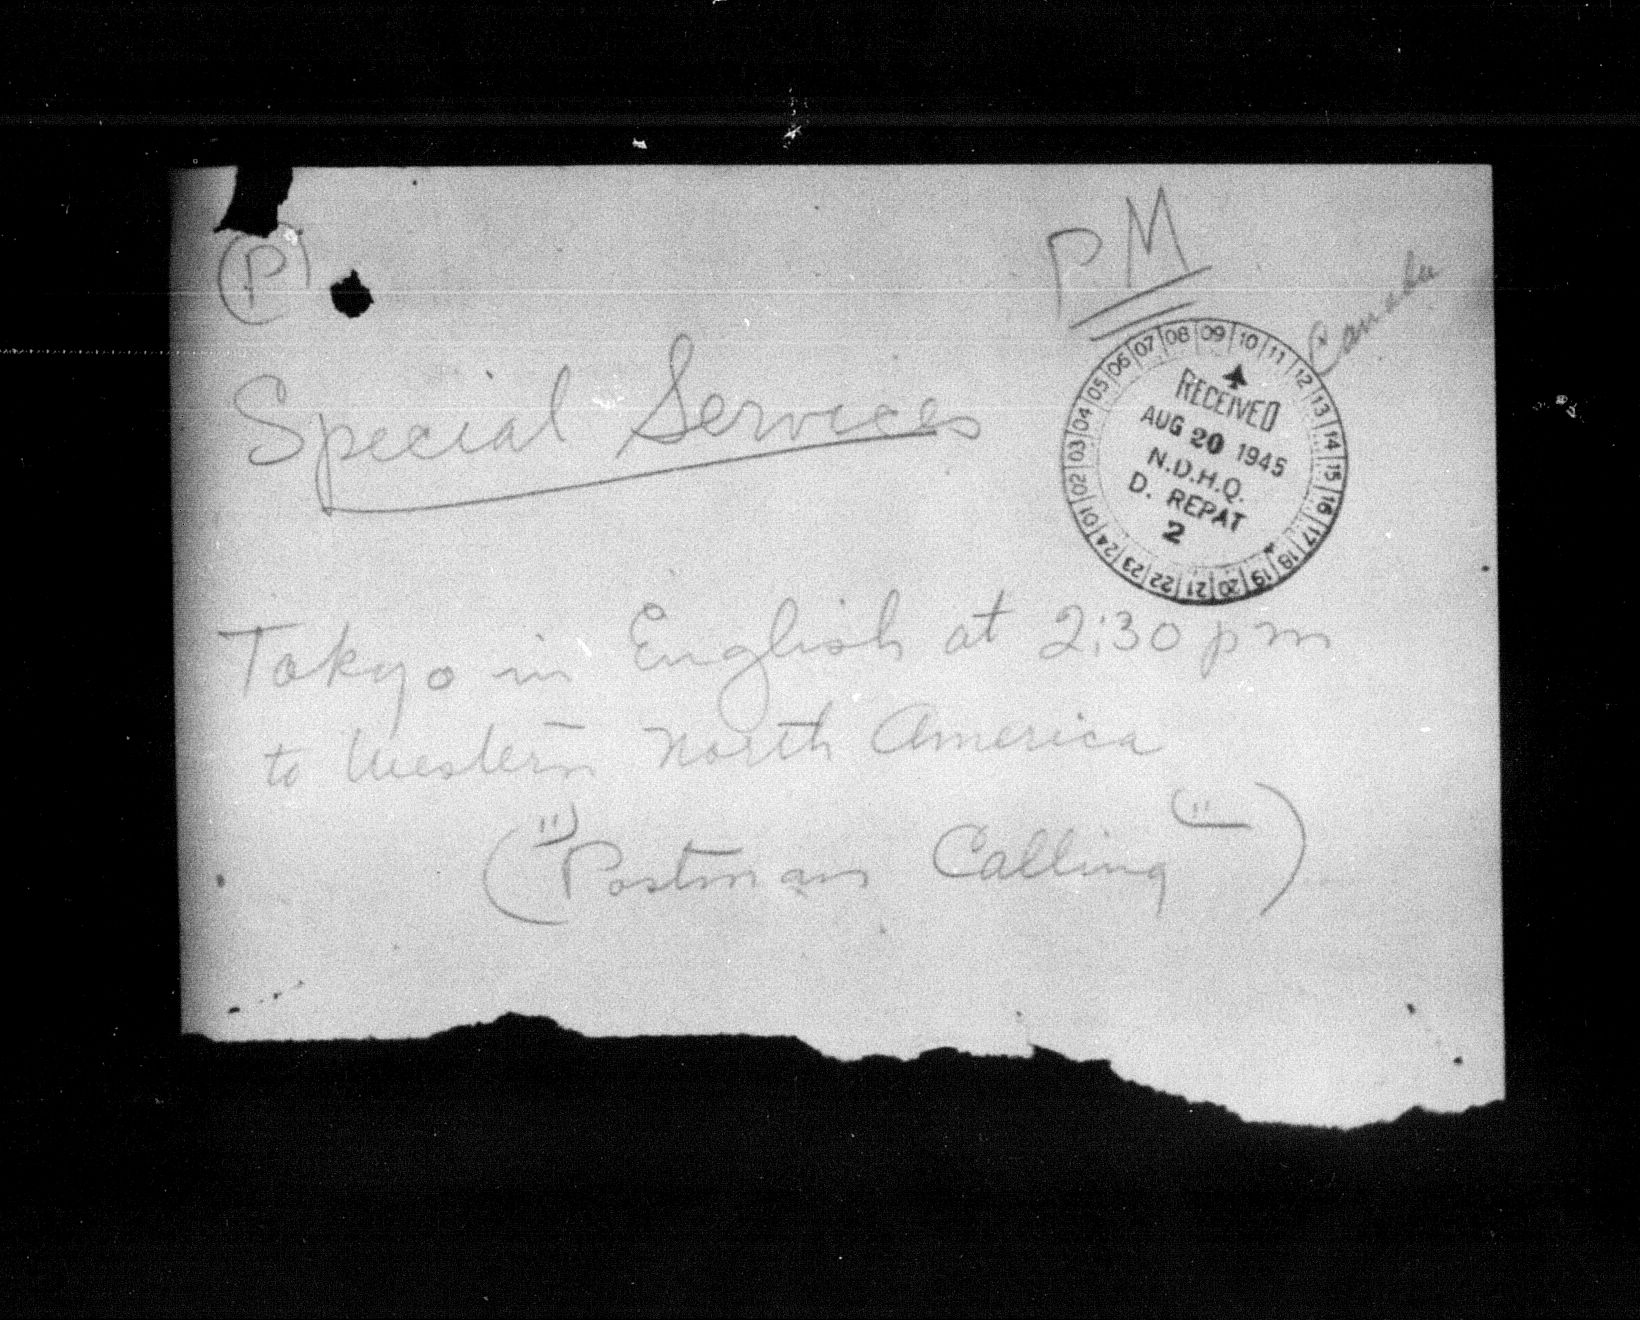 (P)
PM
Canada
Special Services
07 08 09 10 11 12 13 14 15 16 17 18 19 20 21 22 23 24 01 02 03 04 05 06
RECEIVED
AUG 20 1945
N.D.H.Q.
D. REPAT
2
Tokyo in English at 2:30 pm
to Western North America
("Postman Calling")